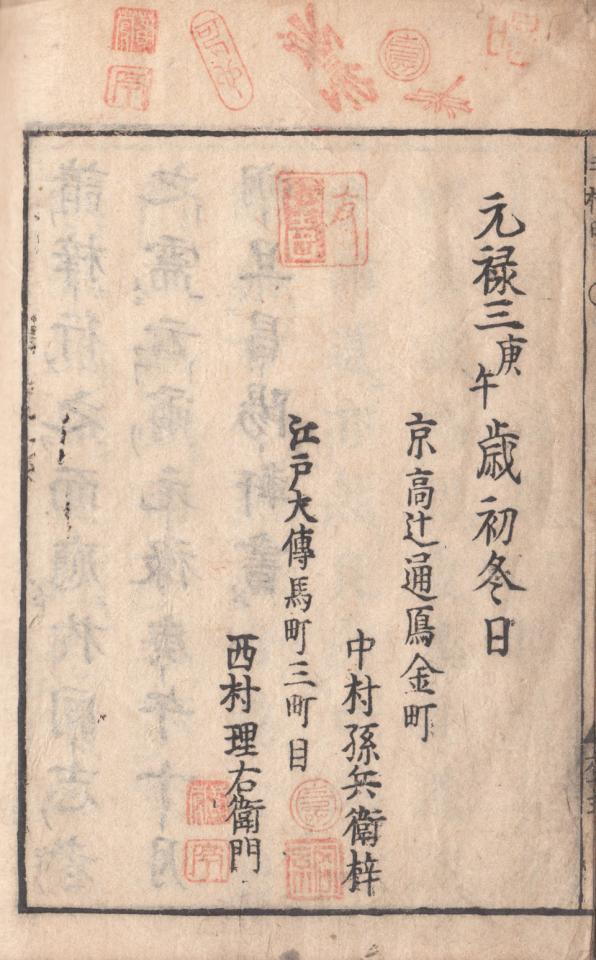 元禄三庚午歳初冬日
京高辻通鴈金町
中村孫兵衛梓
江戸大傳馬町三町目
西村理右衛門